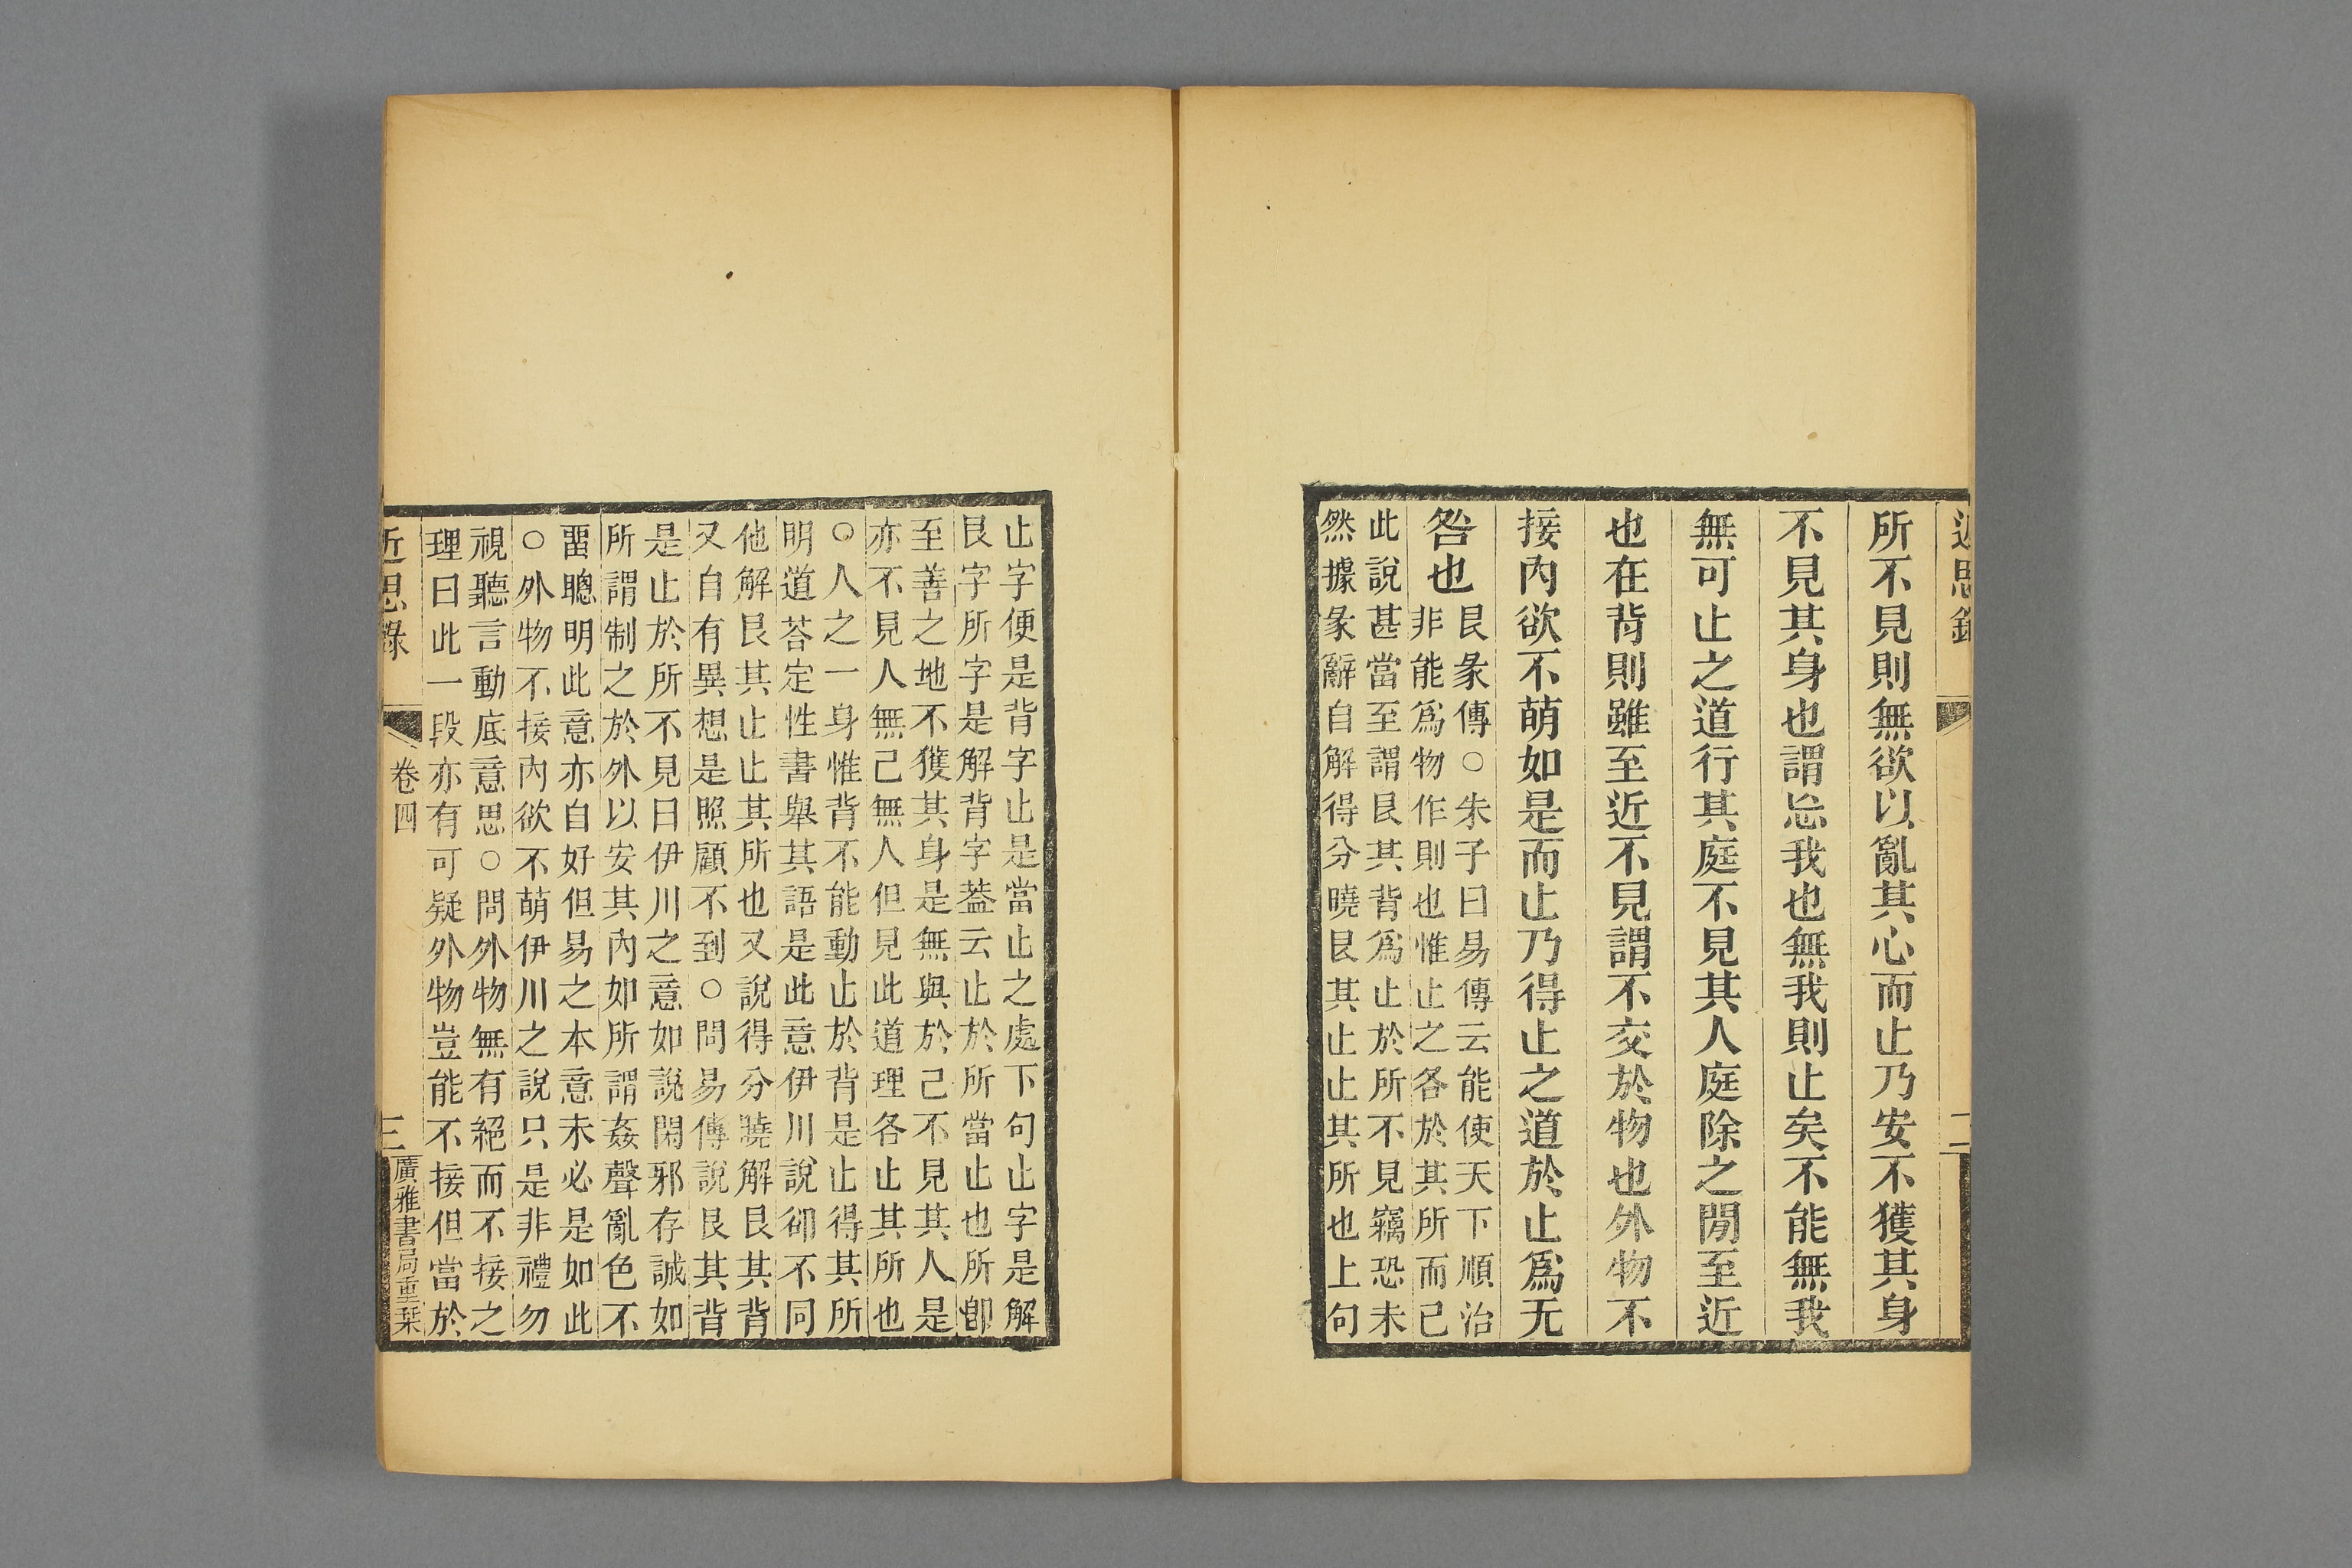 近思錄
二
所不見則無欲以亂其心而止乃安不獲其身
不見其身也謂忘我也無我則止矣不能無我
無可止之道行其庭不見其人庭除之閒至近
也在背則雖至近不見謂不交於物也外物不
接內欲不萌如是而止乃得止之道於止爲无
咎也
艮彖傳○朱子曰易傳云能使天下順治
非能爲物作則也惟止之各於其所而已
此說甚當至謂艮其背爲止於所不見竊恐未
然據彖辭自解得分曉艮其止止其所也上句
止字便是背字止是當止之處下句止字是解
艮字所字是解背字葢云止於所當止也所卽
至善之地不獲其身是無與於己不見其人是
亦不見人無己無人但見此道理各止其所也
○人之一身惟背不能動止於背是止得其所
明道荅定性書舉其語是此意伊川說卻不同
他解艮其止止其所也又說得分曉解艮其背
又自有異想是照顧不到○問易傳說艮其背
是止於所不見曰伊川之意如說閑邪存誠如
所謂制之於外以安其內如所謂姦聲亂色不
畱聰明此意亦自好但易之本意未必是如此
○外物不接內欲不萌伊川之說只是非禮勿
視聽言動底意思○問外物無有絕而不接之
理曰此一段亦有可疑外物豈能不接但當於
近思錄
卷四
三
廣雅書局重栞